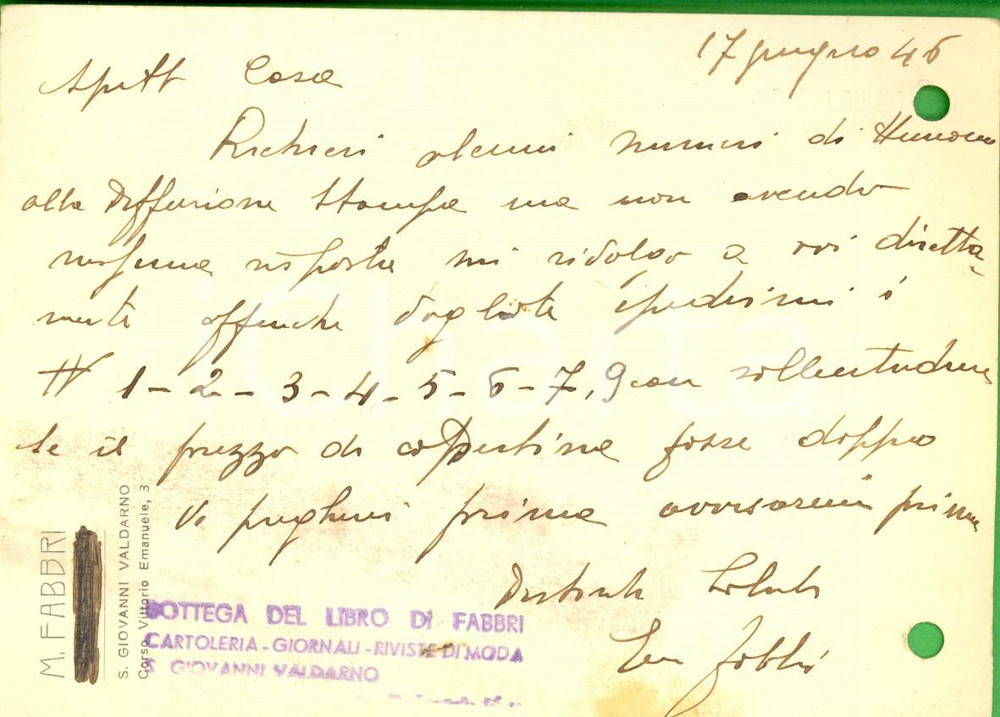 17 giugno 46
Spett Casa
Richiesi alcuni numeri di
alla Diffusione Stampa ma non avendo
nessuna risposta mi rivolgo a voi diretta
mente affinche vogliate spedirmi i
N 1-2-3-4-5-6-7,9 con sollecitudine
se il prezzo di copertina fosse doppio
Vi pregherei prima avvisarmi prima
Distinti Saluti
Fabbri
M. FABBRI
S. GIOVANNI VALDARNO
Corso Vittorio Emanuele, 3
BOTTEGA DEL LIBRO DI FABBRI
CARTOLERIA-GIORNALI-RIVISTE DI MODA
S GIOVANNI VALDARNO